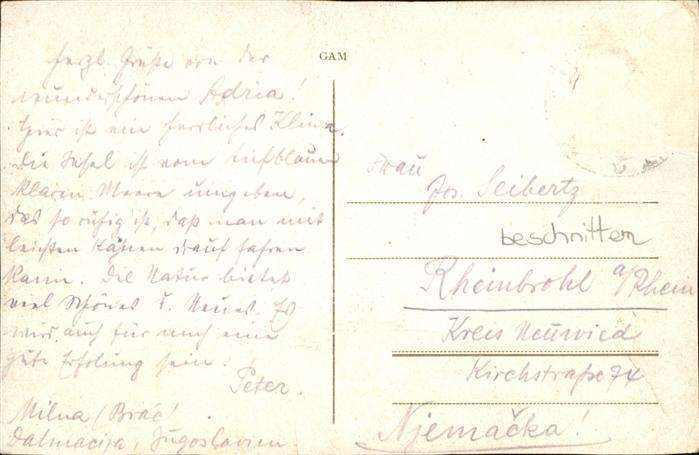 GAM
Herzl. Grüße von der
wunderschönen Adria!
Hier ist ein herrliches Klima.
Die Insel ist vom tiefblauen
klaren Meere umgeben,
das so ruhig ist, daß man mit
leichten Kähnen drauf fahren
kann. Die Natur bietet
viel Schönes u. Neues. Es
wird auch für mich eine
gute Erholung sein.
Peter.
Milna (Brač)
Dalmacija, Jugoslavien.
Frau
Jos. Seibertz
beschnitten
Rheinbrohl a/Rhein
Kreis Neuwied
Kirchstraße 74
Njemačka!